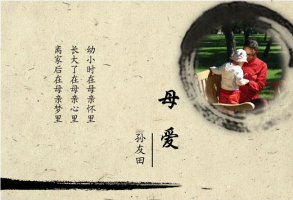 母爱
孙友田
幼小时在母亲怀里
长大了在母亲心里
离家后在母亲梦里